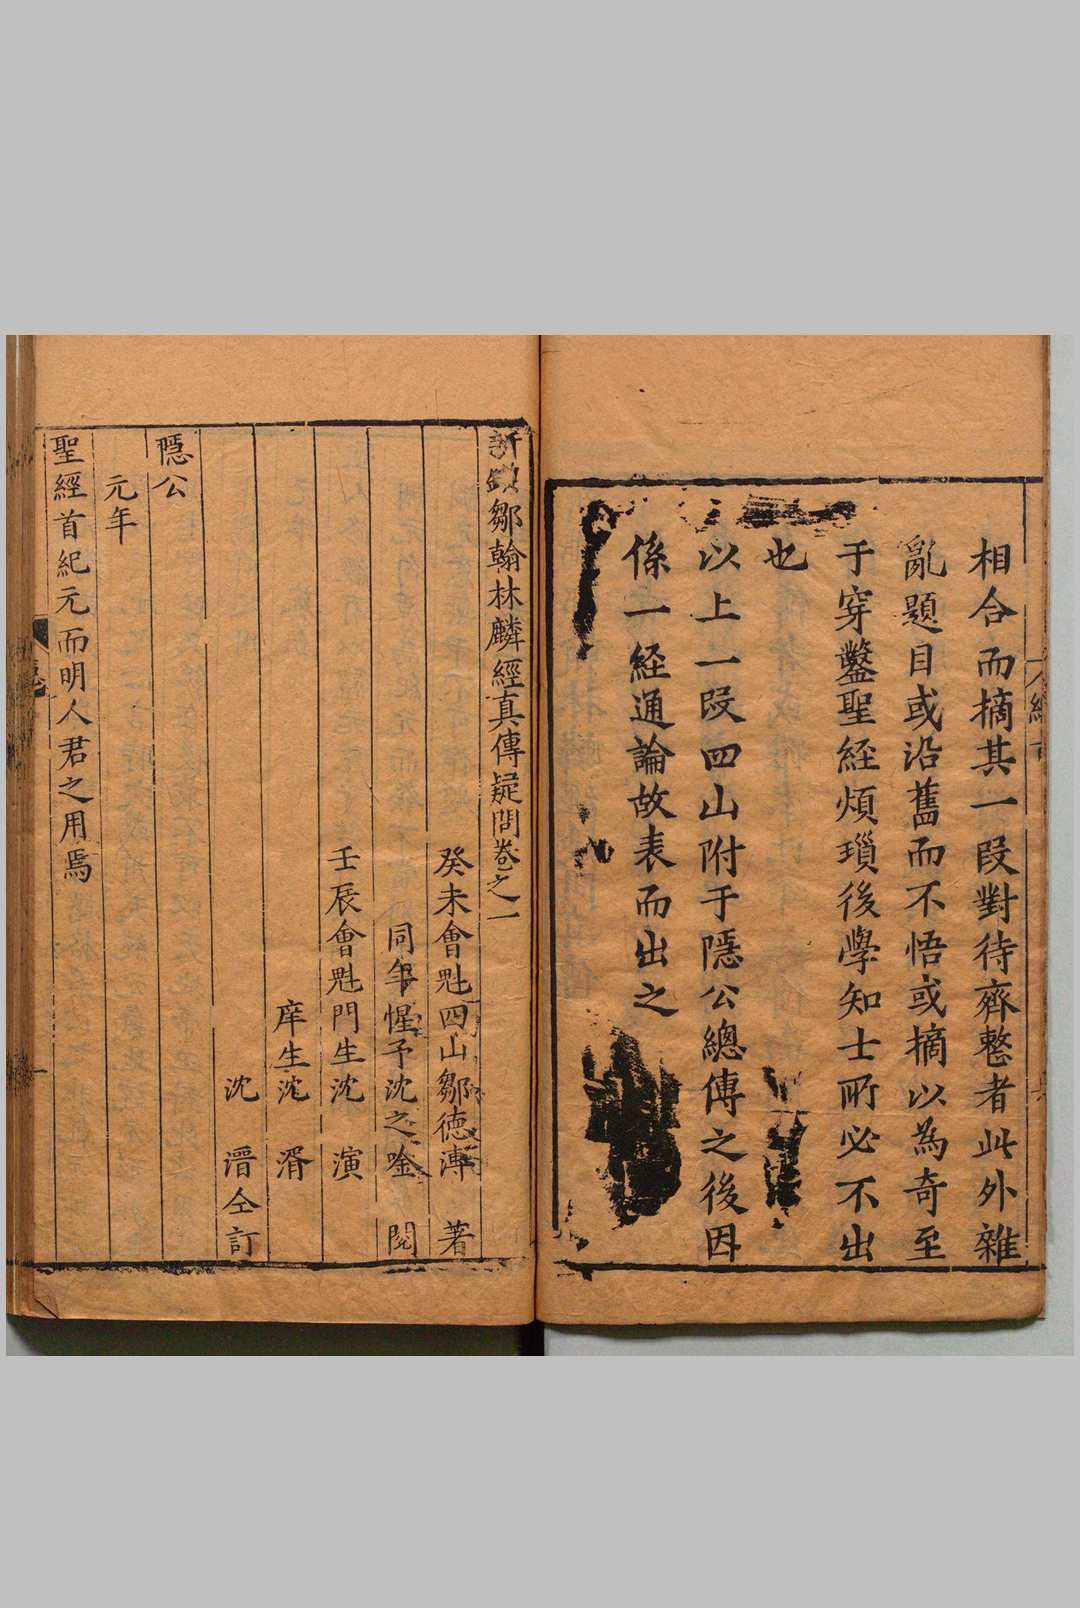 相合而摘其一段對待齊整者此外雜
亂題目或沿舊而不悟或摘以為奇至
于穿鑿聖經煩瑣後學知士所必不出
也
以上一段四山附于隱公總傳之後因
係一經通論故表而出之
新鐫鄒翰林麟經真傳疑問卷之一
癸未會魁四山鄒德溥 著
同年惺予沈之唫 閱
壬辰會魁門生沈 演
庠生沈 湑
沈 㴆仝訂
隱公
元年
聖經首紀元而明人君之用焉